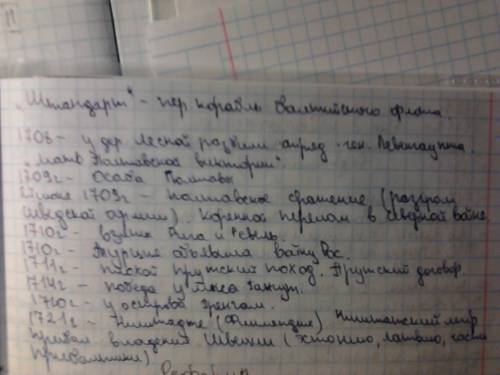 "Штандарт" - пер. корабль Балтийского флота.
1708 - у дер. Лесной разбили отряд ген. Левенгаупта.
"мать Полтавской виктории"
1709г - Осада Полтавы
27 июня 1709г - полтавское сражение (разгром
шведской армии). Коренной перелом в северной войне
1710г - взятие Рига и Ревель.
1710г - Турция объявила войну Рос.
1711г - Прутский поход. Прутский договор.
1714г - победа у мыса Гангут.
1720г - у острова Гренгам.
1721г - Ништадте (Финляндия) Ништадский мир
Прибал владения Швеции (Эстонию, Латвию, часть
Прибалтики)